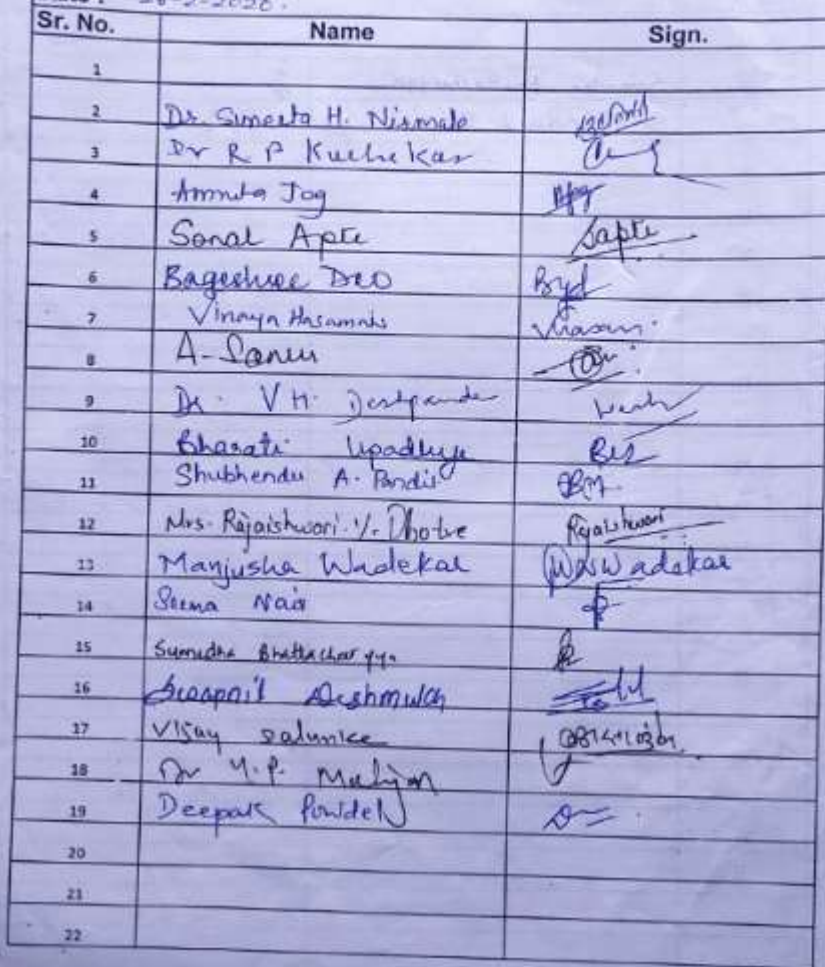 Sr. No. Name Sign.
1
2 Dr. Suneeta H. Nirmale
3 Dr R P Kuchekar
4 Amruta Jog
5 Sonal Apte Sapte
6 Bageshree Deo Byd
7 Vinaya Hasamnis
8 A-
9 Dr. V H. Deshpande
10 Bharati Upadhye
11 Shubhendu A. Pandit
12 Mrs. Rajaishwari. V. Dhotre Rajaishwari
13 Manjusha Wadekar Wadekar
14 Seema Nair
15 Sumedha Bhattacharyya
16 Swapnil Deshmukh
17 Vijay Salunke
18 Dr Y.P. Mahajan
19 Deepak
20
21
22